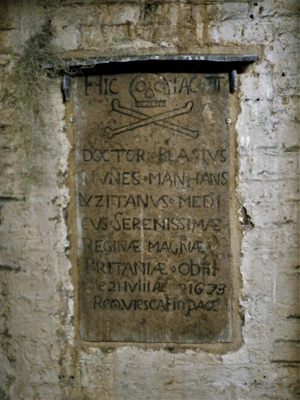 HIC IACET
DOCTOR · BLASIUS
NUNES · MANHANS
UZITANUS · MEDI
CUS · SERENISSIMÆ
REGINÆ MAGNÆ
BRITANIÆ · Obiit
1673
Requiescat in pace